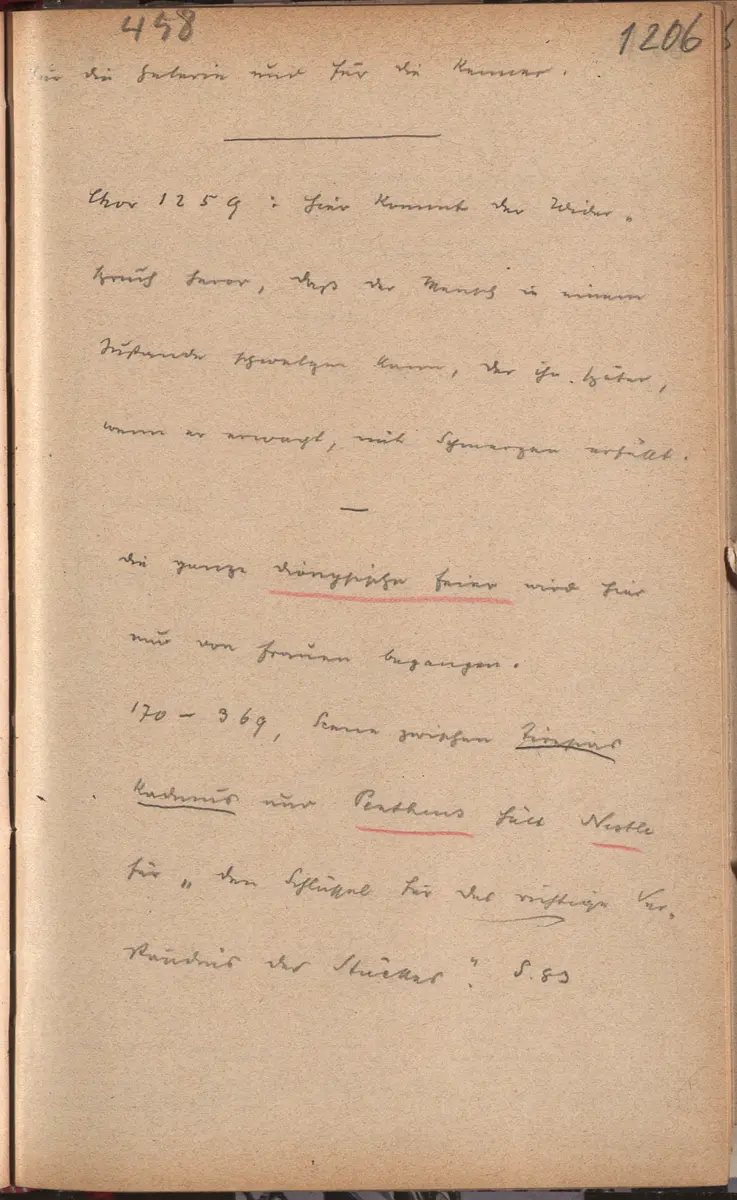 458
1206
für die Hetärie und für die Kenner.
Chor 1259: hier kommt der Wider-
spruch hervor, daß der Mensch in einem
Zustande schwelgen kann, der ihn später,
wenn er erwacht, mit Schmerzen erfüllt.
die ganze dionysische Feier wird hier
nur von Frauen begangen.
170 – 369, Scene zwischen Tiresias
Kadmus und Pentheus hält Nestle
für „den Schlüssel für das richtige Ver-
ständnis des Stückes". S. 83